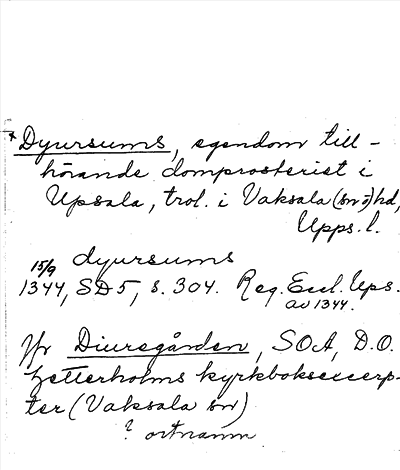 * Dyursums, egendom till-
hörande domprosteriet i
Upsala, trol. i Vaksala (sn o) hd,
Upps. l.
dyursums
15/9
1344, SD 5, s. 304. Reg. Eccl. Ups.
av 1344.
Jfr Diuregården, SOA, D.O.
Zetterholms kyrkboksexcerp-
ter (Vaksala sn)
? ortnamn